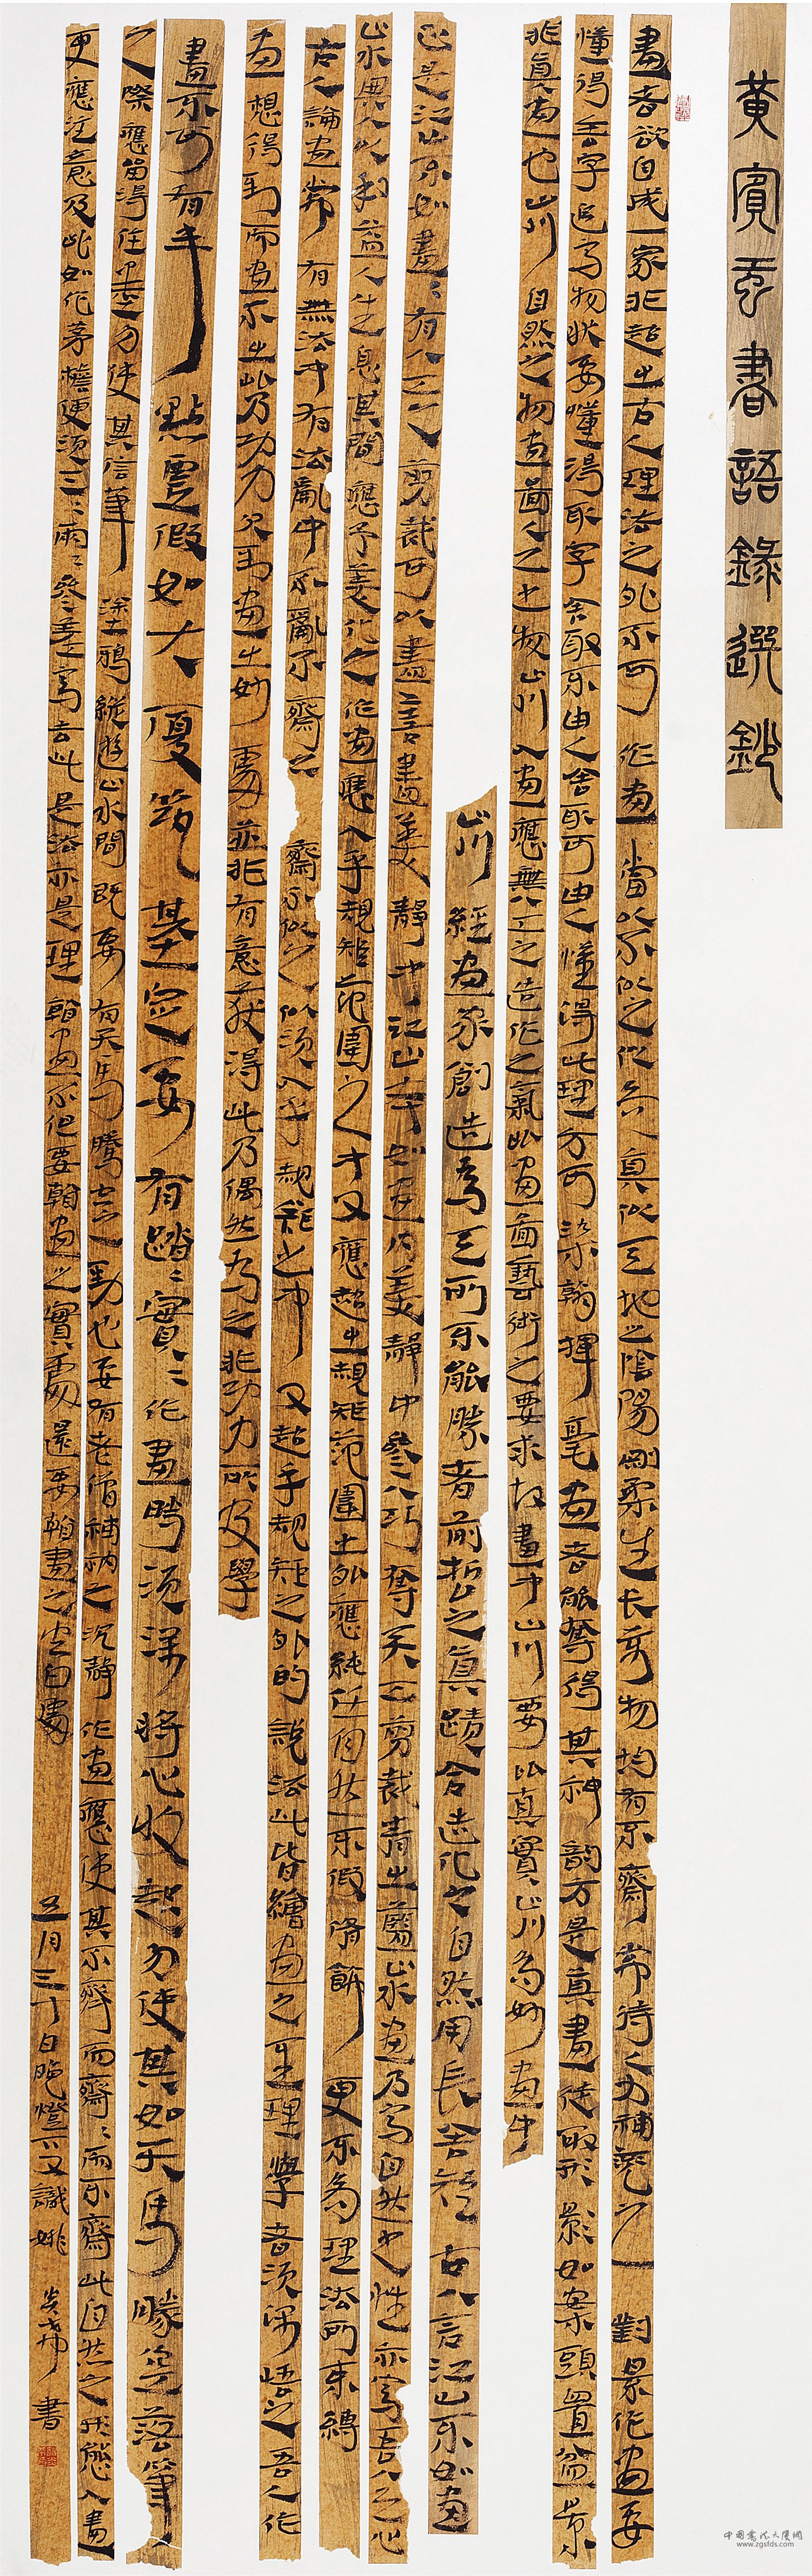 黃賓虹畫語錄選鈔
畫者欲自成一家非超出古人理法之外不可作畫當以不似之似為真似天地之陰陽剛柔生長萬物均有不齊常待人力補之對景作畫要
懂得舍字追寫物狀要懂得取字舍取不由人舍取可由人懂得此理方可染翰揮毫畫者能奪得其神韻方是真畫徒取形影如案頭置盆景
非真畫也山川自然之物畫圖人之也物山川入畫應無人工之造作之氣此畫圖藝術之要求故畫中山川要比真實山川為妙畫中
山川經畫家創造為天所不能勝者前哲之真蹟合造化之自然用長舍短古人言江山不如畫
正是江山不如畫畫有人工之剪裁可以盡善盡美靜中江山如畫內美靜中參人巧奪天工剪裁青出藍山水畫乃寫自然之性亦寫吾人之心
山水與人以利益人生之息其間應予美化之作畫應入乎規矩範圍之中又應超出規矩範圍之外應純任自然不假脩飾更不為理法所束縛
古人論畫常有無法中有法亂中不亂不齊之齊不似之似須入乎規矩之中又超乎規矩之外的說法此皆繪畫之至理學者須深悟之吾人作
畫想得到而畫不出此乃功力不到畫出妙處並非有意獲得此乃偶然為之非功力所及學
畫不可有半點虛假如大廈筑基一定要有踏踏實實作畫時須深將心收起勿使其如天馬騰空落筆
之際應留得住筆勿使其信筆塗鴉縱遊山水間既要有天馬騰空之勁也要有老僧補衲之沉靜作畫應使其不齊而齊齊而不齊此自然之形態入畫
更應注意及此如作茅檐便須三三兩兩參差寫去此是法亦是理翰畫不但要翰畫之實處還要翰畫之空白處
五月三十日晚燈下又識姚 書
中国书法大厦网
www.zgsfds.com